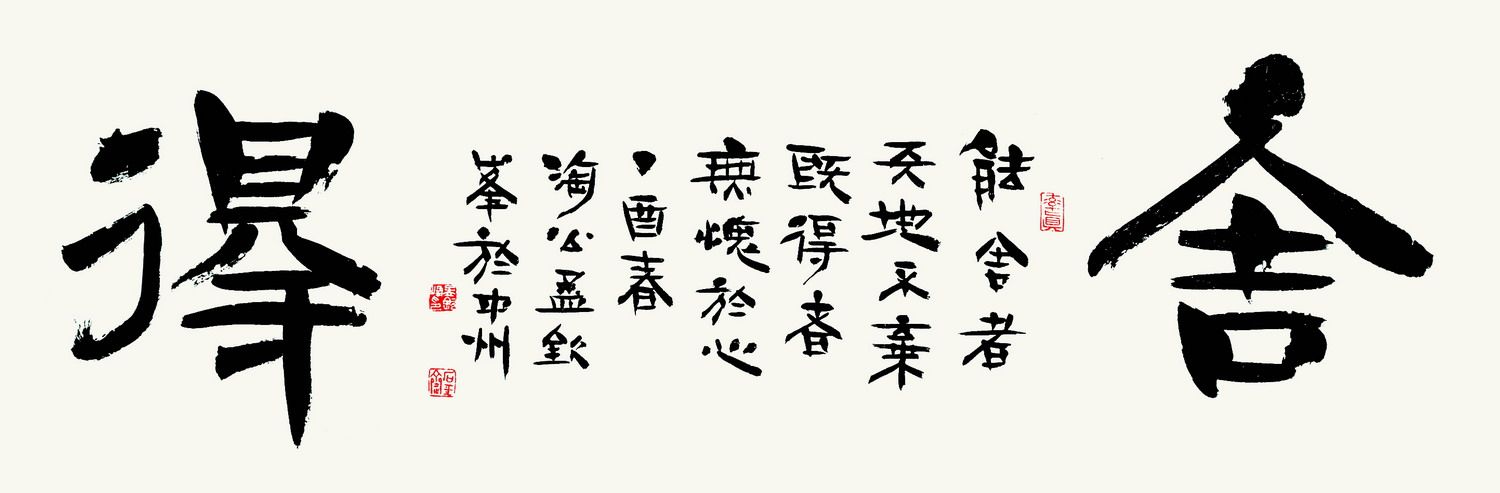 舍
能舍者
天地不棄
既得者
無愧於心
丁酉春
淘公孟欽
峯於中州
得